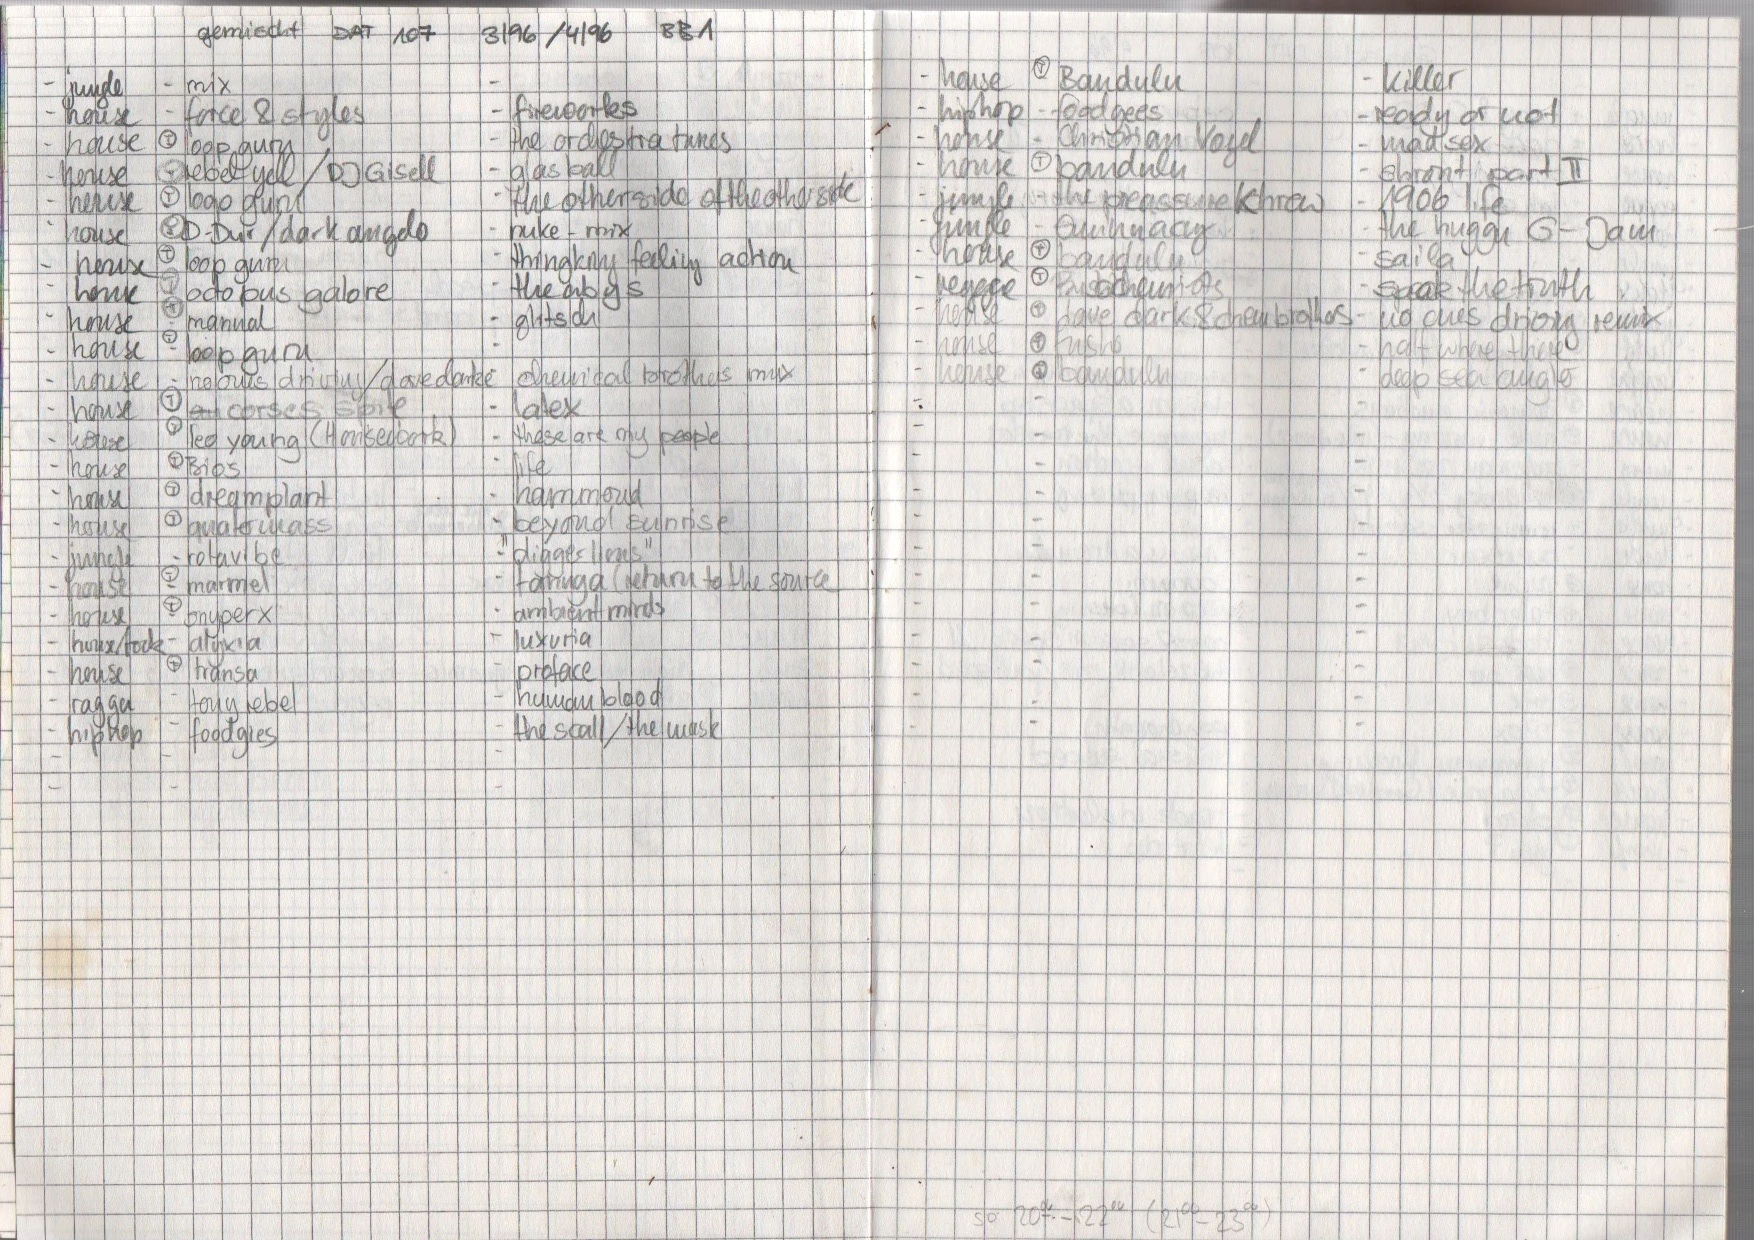 gemischt DAT 107 3/96 /4/96 BB1
- jungle - mix -
- house - force & styles - fireworks
- house Ⓣ loop guru - the orchestra tunes
- house Ⓣ rebel yell / DJ Gisell - glasball
- house Ⓣ loop guru - the otherside of the otherside
- house Ⓣ D-Dur / dark angelo - nuke - mix
- house Ⓣ loop guru - thingkny feeling action
- house Ⓣ octopus galore - the abys
- house Ⓣ manual - glitsch
- house Ⓣ loop guru -
- house - no ones driving / dave darke - chemical brothers mix
- house Ⓣ corses spite - latex
- house Ⓣ leo young (Housework) - these are my people
- house Ⓣ Bios - life
- house Ⓣ dreamplant - hammond
- house Ⓣ quatermass - beyond sunrise
- jungle - rotavibe - "diggers lions"
- house Ⓣ marmel - tarringa (return to the source
- house Ⓣ onyperx - ambient minds
- house/took - alyxia - luxuria
- house Ⓣ transa - proface
- ragga - tony rebel - human blood
- hiphop - foodgies - the scall / the mask
- house Ⓣ Bandulu - killer
- hiphop - foodgees - ready or not
- house - Christian Vogel - mad sex
- house Ⓣ bandulu - chront part II
- jungle - the preassure Khrew - 1906 life
- jungle - - the huggy G-Jam
- house Ⓣ bandulu - saila
- reggae Ⓣ - speak the truth
- house Ⓣ dave dark & chem brothers - no ones driving remix
- house Ⓣ - half where there
- house Ⓣ bandulu - deep sea angle
so 20⁰⁰ - 22⁰⁰ (21⁰⁰ - 23⁰⁰)